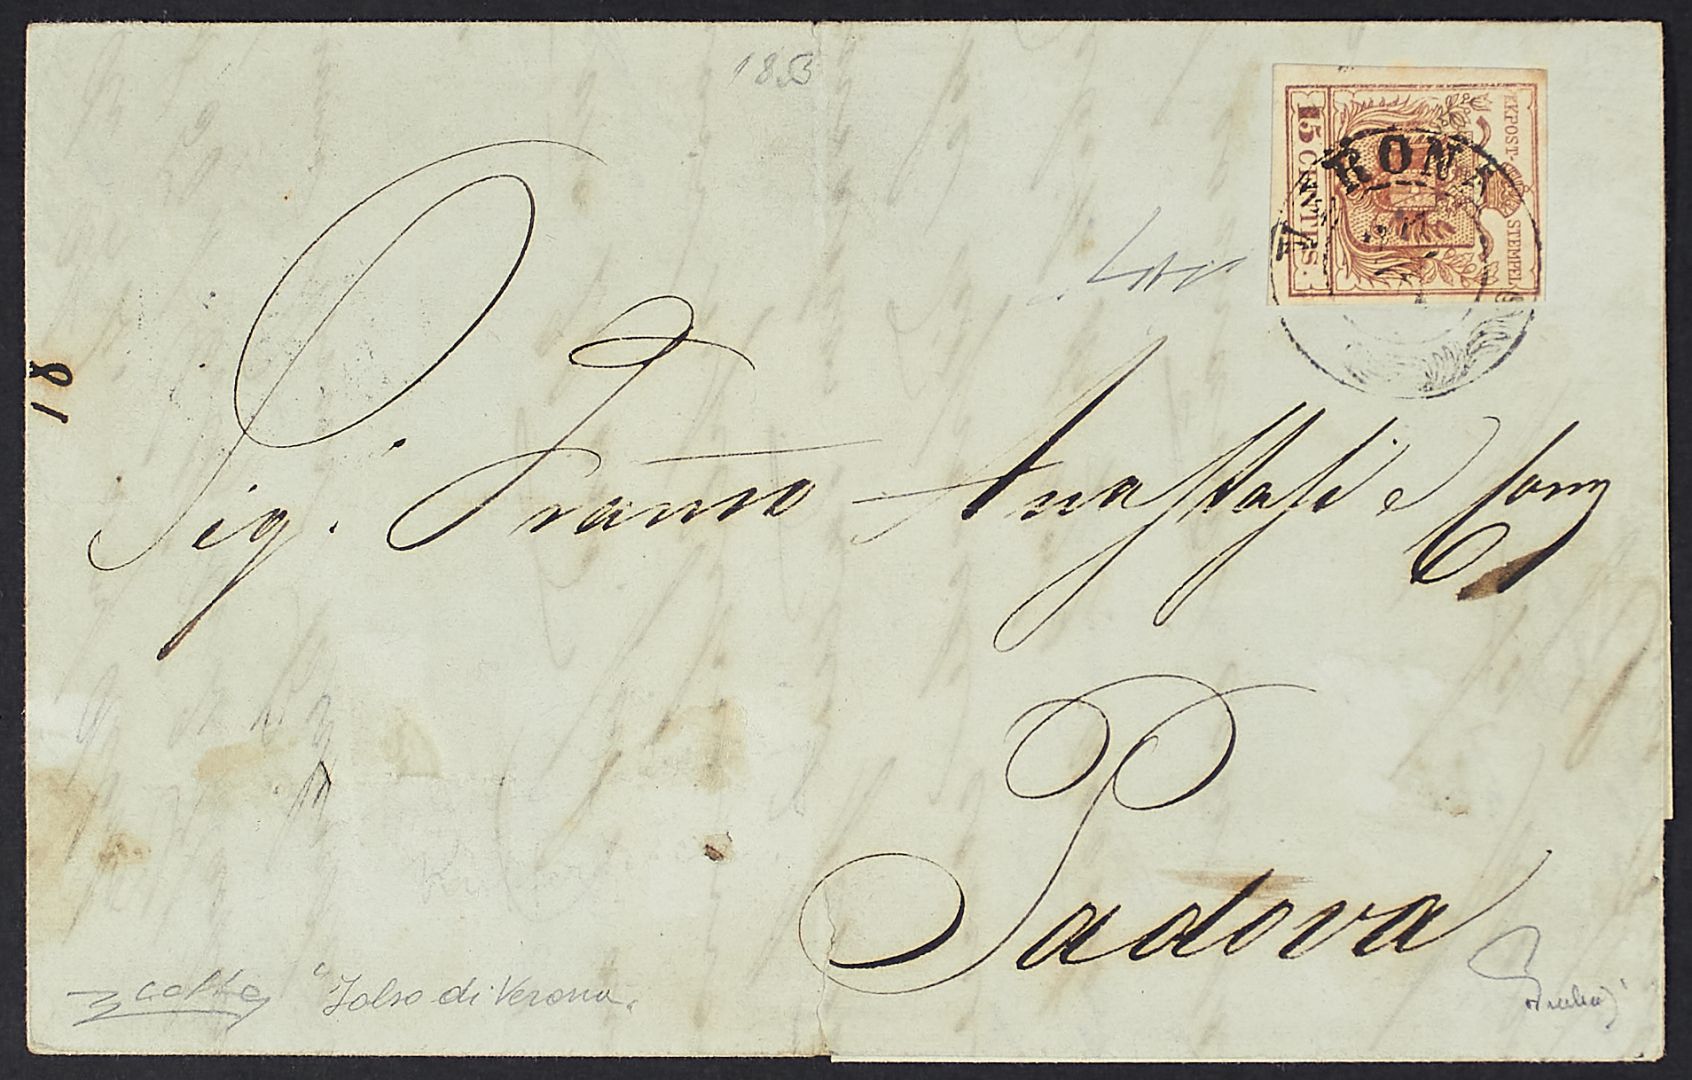 1853
KKPOST-STEMPEL
15 CENTES.
VERONA
18
Sig. Franco Anastasi e Comp
Padova
"Falso di Verona"